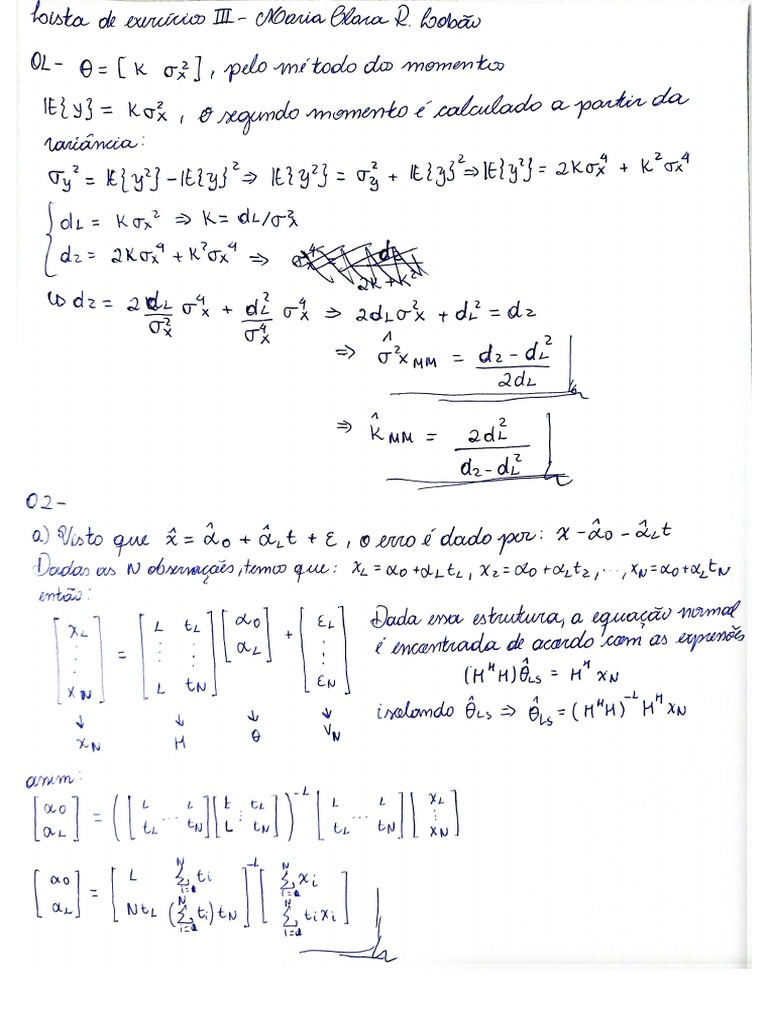 Lista de exercício III - Maria Clara R. Lobão
01- θ = [K σx²], pelo método dos momentos
IE{y} = Kσx², o segundo momento é calculado a partir da
variância:
σy² = IE{y²} - IE{y}² ⇒ IE{y²} = σy² + IE{y}² ⇒ IE{y²} = 2Kσx⁴ + K²σx⁴
{ d1 = Kσx² ⇒ K = d1/σx²
{ d2 = 2Kσx⁴ + K²σx⁴ ⇒
↳ d2 = 2 d1/σx² σx⁴ + d1²/σx⁴ σx⁴ ⇒ 2d1σx² + d1² = d2
⇒ σ̂²x MM = (d2 - d1²)/(2d1)
⇒ K̂ MM = 2d1²/(d2 - d1²)
02-
a) Visto que x̂ = α̂0 + α̂1t + ε, o erro é dado por: x - α̂0 - α̂1t
Dadas as N observações, temos que: x1 = α0 + α1t1, x2 = α0 + α1t2, ..., xN = α0 + α1tN
então:
[x1 ⋮ xN] = [1 t1 ⋮ ⋮ 1 tN] [α0 α1] + [ε1 ⋮ εN]
Dada essa estrutura, a equação normal
é encontrada de acordo com as expressões
(HᴴH)θ̂LS = Hᴴ xN
isolando θ̂LS ⇒ θ̂LS = (HᴴH)⁻¹ Hᴴ xN
↓ ↓ ↓ ↓
xN H θ VN
assim:
[α0 α1] = ([1 ... 1 t1 ... tN] [1 t1 ⋮ ⋮ 1 tN])⁻¹ [1 ... 1 t1 ... tN] [x1 ⋮ xN]
[α0 α1] = [1 Σti Nt1 (Σti)tN]⁻¹ [Σxi Σtixi]